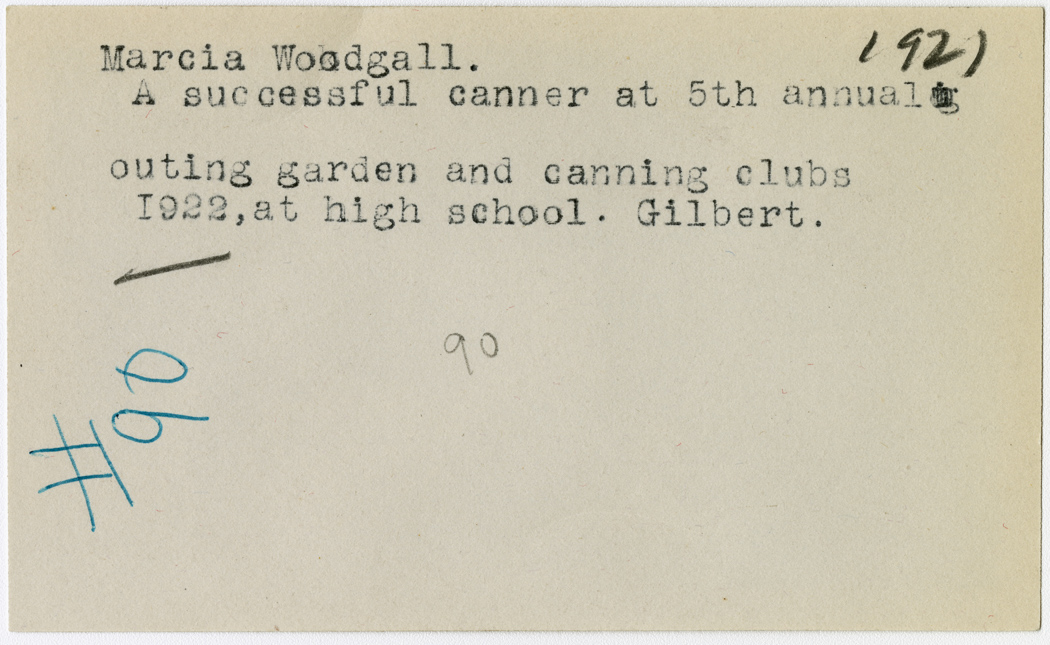 1921
Marcia Woodgall.
A successful canner at 5th annual
outing garden and canning clubs
I922,at high school. Gilbert.
90
#90